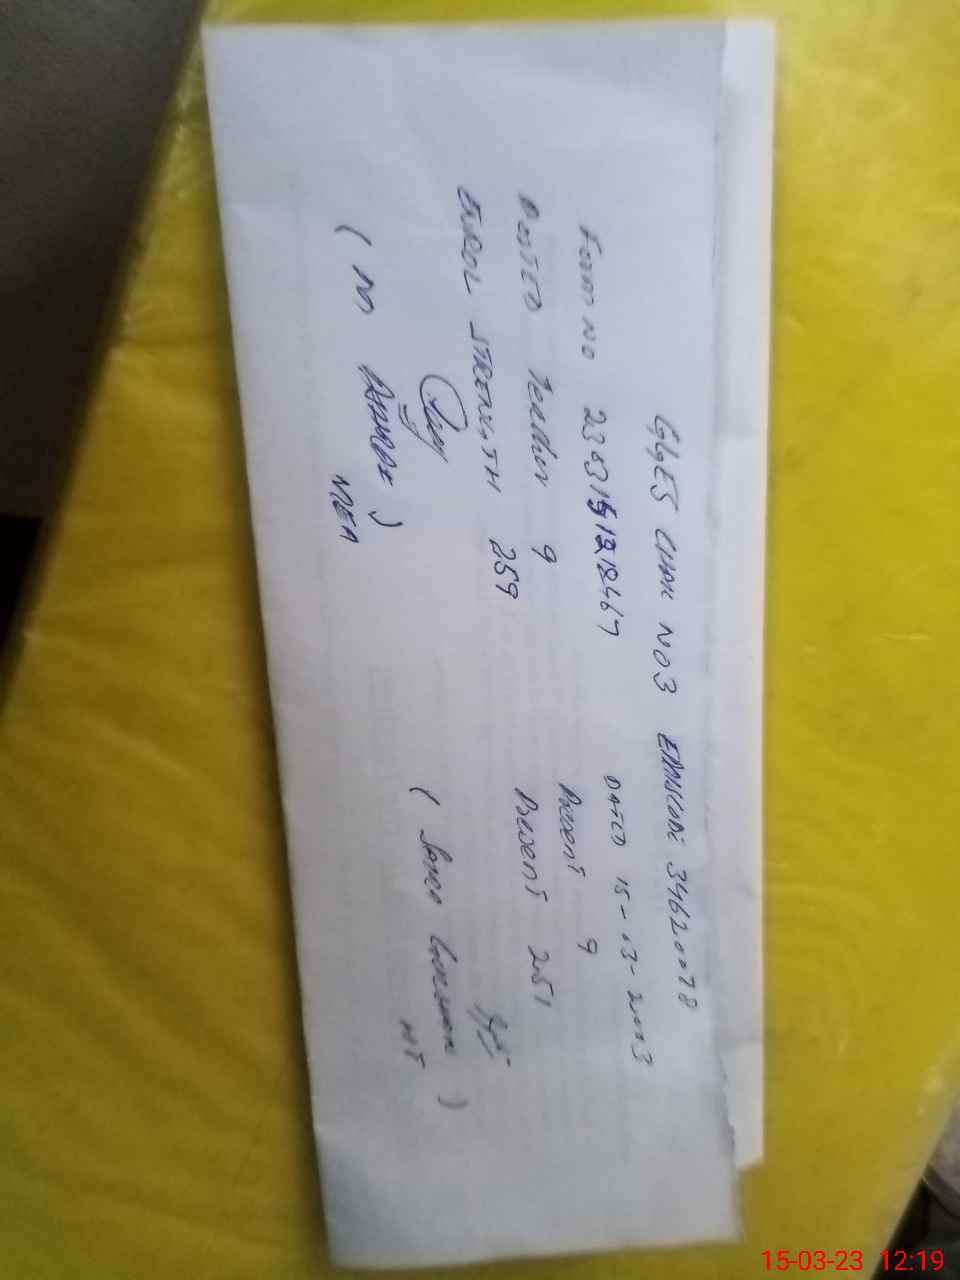 GGES CHAK NO3 EMISCODE 34620078
FORM NO 2303151212467 DATED 15-03-2003
POSTED Teacher 9 Present 9
ENROL STRENGTH 259 Present 251
( M ) ( )
MEA HT
15-03-23 12:19